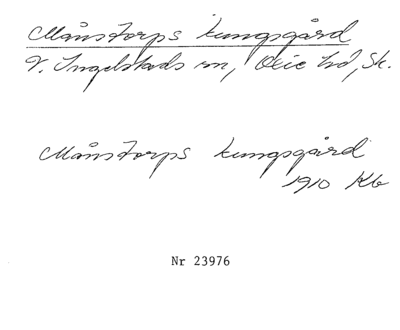 Månstorps kungsgård
V. Ingelstads sn, Oxie hd, Sk.
Månstorps kungsgård
1910 Kb
Nr 23976